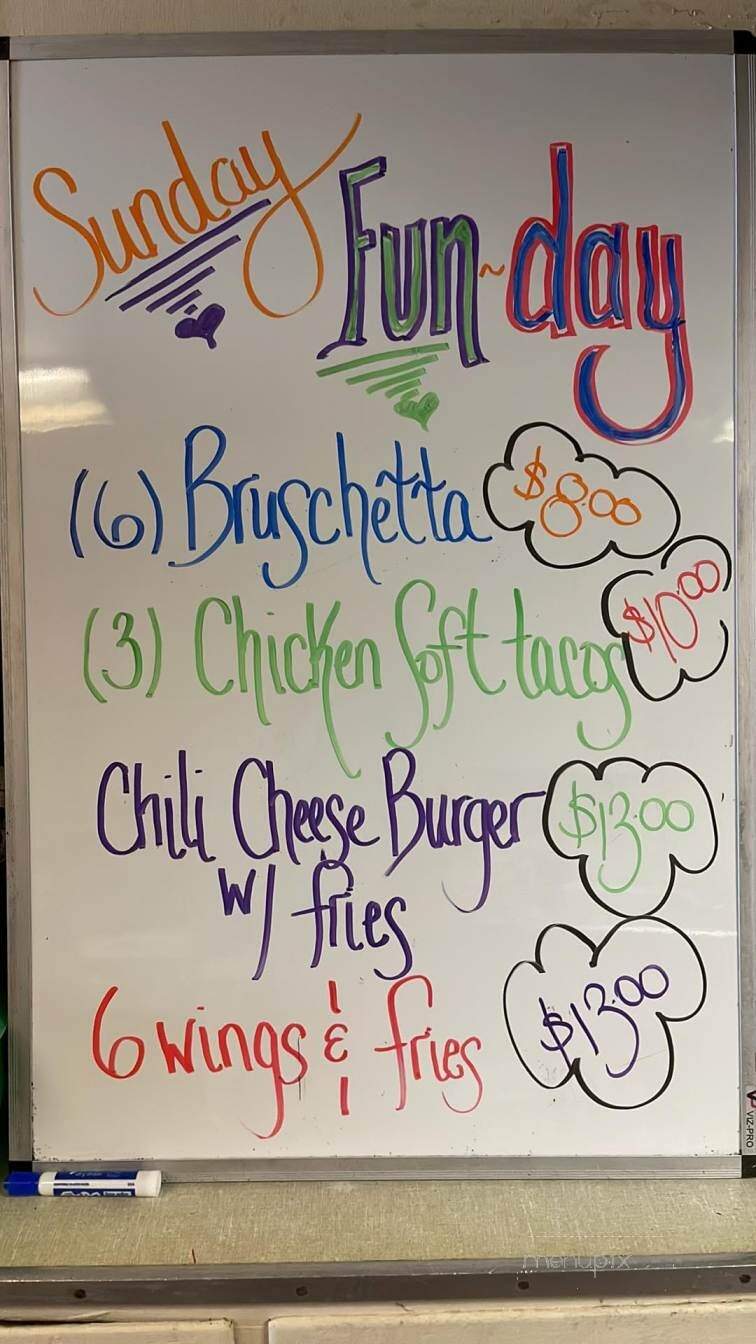 Sunday Fun~day
(6) Bruschetta $8.00
(3) Chicken Soft tacos $10.00
Chili Cheese Burger $13.00
w/ fries
6 wings & fries $13.00
VIZ-PRO
menupix